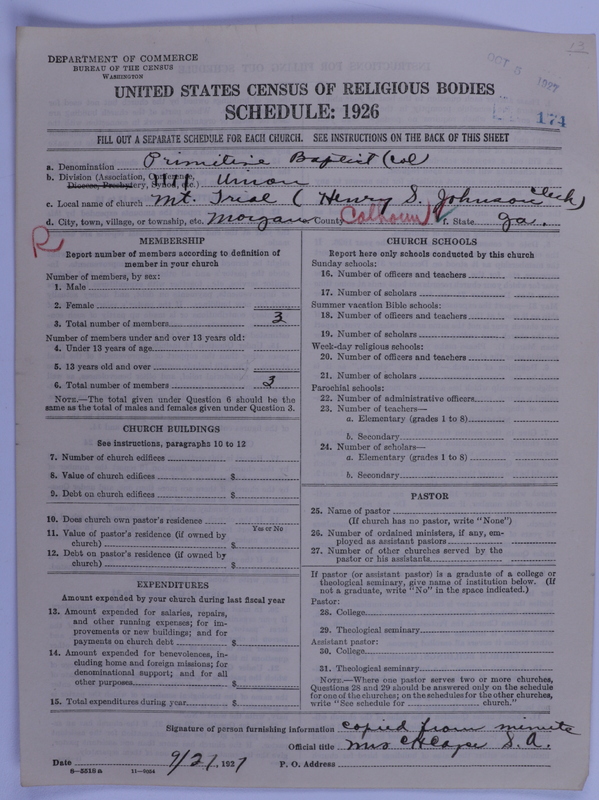 13
DEPARTMENT OF COMMERCE
BUREAU OF THE CENSUS
WASHINGTON
OCT 8 1927
174
UNITED STATES CENSUS OF RELIGIOUS BODIES
SCHEDULE: 1926
FILL OUT A SEPARATE SCHEDULE FOR EACH CHURCH. SEE INSTRUCTIONS ON THE BACK OF THIS SHEET
a. Denomination Primitive Baptist (Col)
b. Division (Association, Conference,
Diocese, Presbytery, Synod, etc.) Union
c. Local name of church Mt. Trial (Henry S. Johnson Clerk)
d. City, town, village, or township, etc. Morgan County Calhoun f. State Ga.
R
MEMBERSHIP
Report number of members according to definition of
member in your church
Number of members, by sex:
1. Male
2. Female
3. Total number of members 3
Number of members under and over 13 years old:
4. Under 13 years of age
5. 13 years old and over
6. Total number of members 3
NOTE.—The total given under Question 6 should be the
same as the total of males and females given under Question 3.
CHURCH BUILDINGS
See instructions, paragraphs 10 to 12
7. Number of church edifices
8. Value of church edifices $
9. Debt on church edifices $
10. Does church own pastor's residence
Yes or No
11. Value of pastor's residence (if owned by
church) $
12. Debt on pastor's residence (if owned by
church) $
EXPENDITURES
Amount expended by your church during last fiscal year
13. Amount expended for salaries, repairs,
and other running expenses; for im-
provements or new buildings; and for
payments on church debt $
14. Amount expended for benevolences, in-
cluding home and foreign missions; for
denominational support; and for all
other purposes $
15. Total expenditures during year $
CHURCH SCHOOLS
Report here only schools conducted by this church
Sunday schools:
16. Number of officers and teachers
17. Number of scholars
Summer vacation Bible schools:
18. Number of officers and teachers
19. Number of scholars
Week-day religious schools:
20. Number of officers and teachers
21. Number of scholars
Parochial schools:
22. Number of administrative officers
23. Number of teachers—
a. Elementary (grades 1 to 8)
b. Secondary
24. Number of scholars—
a. Elementary (grades 1 to 8)
b. Secondary
PASTOR
25. Name of pastor
(If church has no pastor, write "None")
26. Number of ordained ministers, if any, em-
ployed as assistant pastors
27. Number of other churches served by the
pastor or his assistants
If pastor (or assistant pastor) is a graduate of a college or
theological seminary, give name of institution below. (If
not a graduate, write "No" in the space indicated.)
Pastor:
28. College
29. Theological seminary
Assistant pastor:
30. College
31. Theological seminary
NOTE.—Where one pastor serves two or more churches,
Questions 28 and 29 should be answered only on the schedule
for one of the churches; on the schedules for the other churches,
write "See schedule for church."
Signature of person furnishing information copied from minute
Official title Mrs S. A.
Date 9/21, 1927 P. O. Address
8—5518 a 11—9094